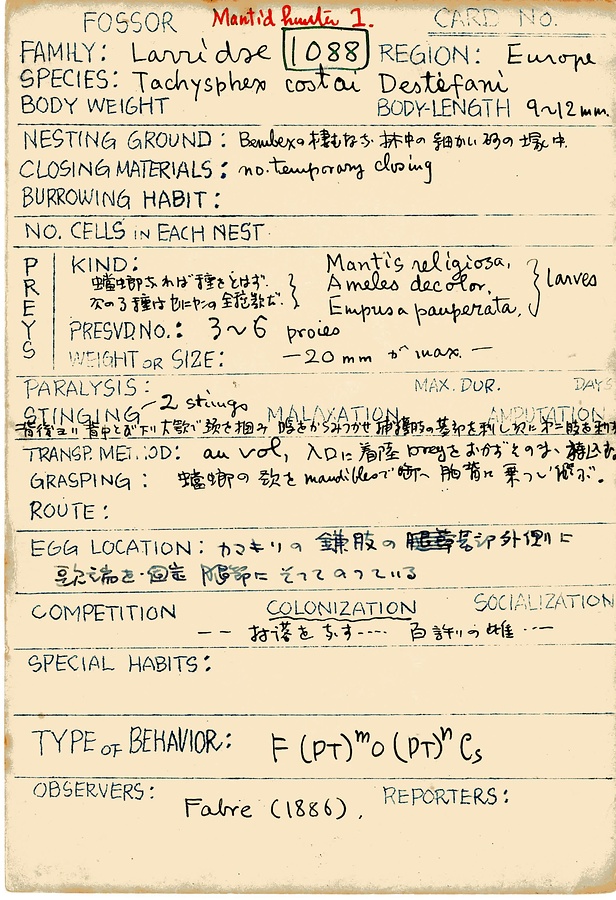 FOSSOR Mantid hunter 1. CARD NO.
FAMILY: Larridae 1088 REGION: Europe
SPECIES: Tachysphex costai Destefani
BODY WEIGHT BODY-LENGTH 9~12mm.
NESTING GROUND: Bembexの棲むなき 林中の細かい砂の塚中.
CLOSING MATERIALS: no temporary closing
BURROWING HABIT:
NO. CELLS IN EACH NEST
PREYS KIND: Mantis religiosa,
蟷螂であれば種をとはず. Ameles decolor, larves
次の3種は Empusa pauperata,
PRESVD.NO.: 3~6 proies
WEIGHT OR SIZE: —20 mm が max. —
PARALYSIS: MAX. DUR. DAYS
STINGING 2 stings MALAXATION AMPUTATION
背後より 背中にとび下り大顎で頚を掴み 腹を 捕獲肢の基部を刺し次に
TRANSP. MET.OD: au vol, 入口に着陸 preyをおかずそのまま
GRASPING: 蟷螂の頚をmandiblesで 胸背に乗って
ROUTE:
EGG LOCATION: カマキリの 鎌肢の 外側に
頭端を固定 腿節に そってのっている
COMPETITION COLONIZATION SOCIALIZATION
— — 村落をなす.... 百許りの雌...
SPECIAL HABITS:
TYPE OF BEHAVIOR: F (PT)ᵐO (PT)ⁿ Cs
OBSERVERS: REPORTERS:
Fabre (1886),